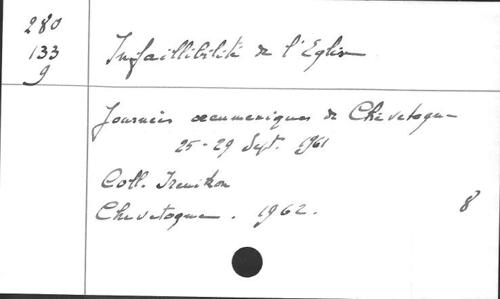 280
133
9
Infaillibilité de l'Eglise
Journées œcumeniques de Chevetogne
25-29 Sept. 1961
Coll. Irenikon
Chevetogne. 1962.
8